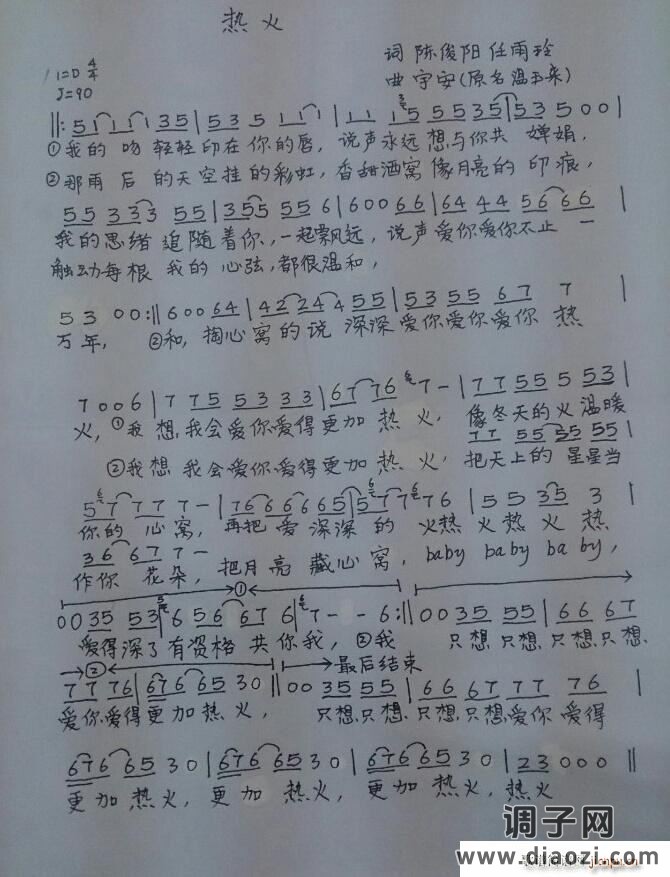 热火
词 陈俊阳 任雨玲
1=D 4/4
曲 宇安(原名温玉来)
J=90
||: 5 1 1 1 1 3 5 | 5 3 5 1 1 | 1 1 1 5 5 5 3 5 | 5 3 5 0 0 |
①我的 吻 轻轻印在你的唇, 说声永远想与你共 婵娟,
②那雨 后 的天空挂的彩虹, 香甜酒窝像月亮的印痕,
5 5 3 3 3 5 5 | 3 5 5 5 5 6 | 6 0 0 6 6 | 6 4 4 4 5 6 6 6 |
我的思绪 追随着你,一起飘风远, 说声爱你爱你不止 一
触动每根 我的 心弦,都很温和,
5 3 0 0 :|| 6 0 0 6 4 | 4 2 2 4 4 5 5 | 5 3 5 5 6 7 7 |
万年, ②和, 掏心窝的说 深深爱你爱你爱你 热
7 0 0 6 | 7 7 5 5 3 3 3 | 6 7 7 6 7 - | 7 7 5 5 5 5 3 |
火, ①我 想,我会爱你爱得更加 热 火, 像冬天的火温暖
7 7 5 5 3 5 5 5
②我想 我会爱你爱得更加热火, 把天上的 星星当
5 7 7 7 7 - | 7 6 6 6 6 6 5 | 5 7 7 7 6 | 5 5 3 5 3 |
你的 心窝, 再把 爱 深深 的 火热 火 热 火 热
3 6 6 7 7 -
作你 花朵, 把月亮 藏心窝, baby baby baby,
①
0 0 3 5 5 3 | 6 5 6 6 7 6 | 7 - - 6 :|| 0 0 3 5 5 5 | 6 6 6 7
爱得深了有资格 共你我, ②我 只想,只想,只想,只想,
② 最后结束
7 7 7 6 | 6 7 6 6 5 3 0 || 0 0 3 5 5 5 | 6 6 6 7 7 7 7 6
爱你爱得更加热火, 只想,只想,只想,只想爱你 爱得
6 7 6 6 5 3 0 | 6 7 6 6 5 3 0 | 6 7 6 6 5 3 0 | 2 3 0 0 0 ||
更加热火, 更加 热火, 更加热火, 热火
调子网
www.diaozi.com